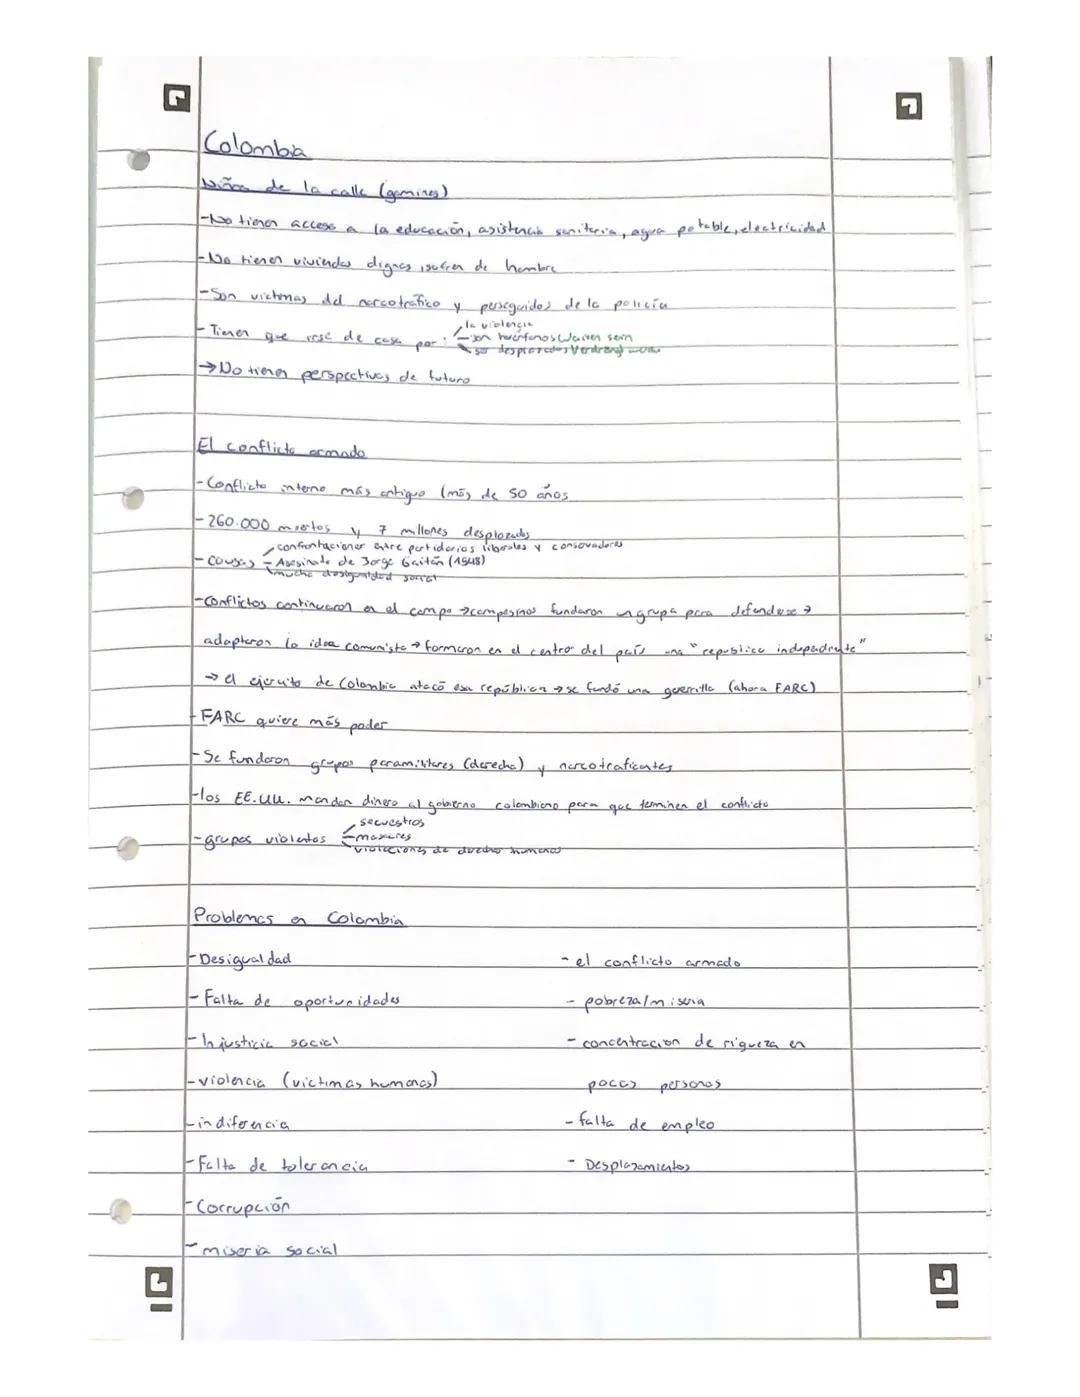 Colombia
Niños de la calle (gamines)
-No tienen acceso a la educación, asistencia sanitaria, agua potable, electricidad
-No tienen viviendas dignas, sufren de hambre
-Son victimas del narcotráfico y perseguidos de la policía
-Tienen que irse de casa por:
la violencia
-son huérfanos Waisen sein
ser desplazados
→No tienen perspectivas de futuro
El conflicto armado
-Conflicto interno más antiguo (más de 50 años
-260.000 muertos y 7 millones desplazados
confrontaciones entre partidarios liberales y conservadores
-causas - Asesinato de Jorge Gaitán (1948)
mucha desigualdad social
-Conflictos continuaron en el campo →campesinos fundaron un grupa para defenderse →
adaptaron la idea comunista → formaron en el centro del país una "republica independiente"
→ el ejercito de Colombia atacó esa república → se fundó una guerrilla (ahora FARC)
-FARC quiere más poder
-Se fundaron grupos paramilitares (derecha) y narcotraficantes
-los EE.UU. mandan dinero al gobierno colombiano para que terminen el conflicto
secuestros
-grupos violentos -masacres
violaciones de derechos humanos
Problemas en Colombia
-Desigualdad
- el conflicto armado
-Falta de oportunidades
- pobreza/miseria
-Injusticia social
- concentracion de riqueza en
pocas personas
-violencia (victimas humanas)
-indiferencia
- falta de empleo
-Falta de tolerancia
- Desplazamientos
-Corrupción
-miseria social